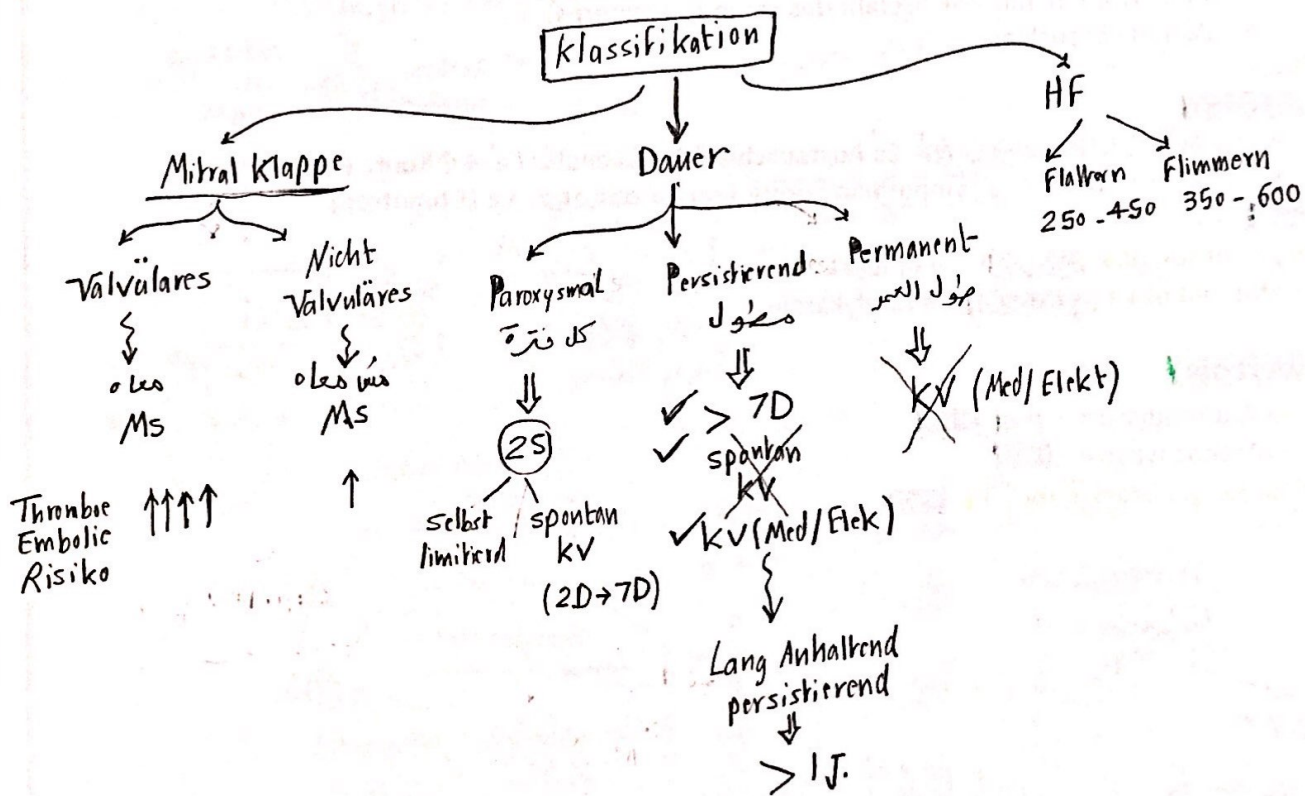 Klassifikation
Mitral Klappe
Valvuläres
معاه
MS
Nicht
Valvuläres
مش معاه
MS
Thromboe
Embolie
Risiko
↑↑↑↑
↑
Dauer
Paroxysmal
كل فترة
⇓
2S
selbst
limitierd
spontan
KV
(2D→7D)
Persistierend
مطول
⇓
✓ > 7D
✓ spontan
KV
✓ KV (Med/Elek)
Lang Anhaltend
persistierend
⇓
> 1J.
Permanent
طول العمر
⇓
KV (Med/Elekt)
HF
Flattern
250-450
Flimmern
350-600